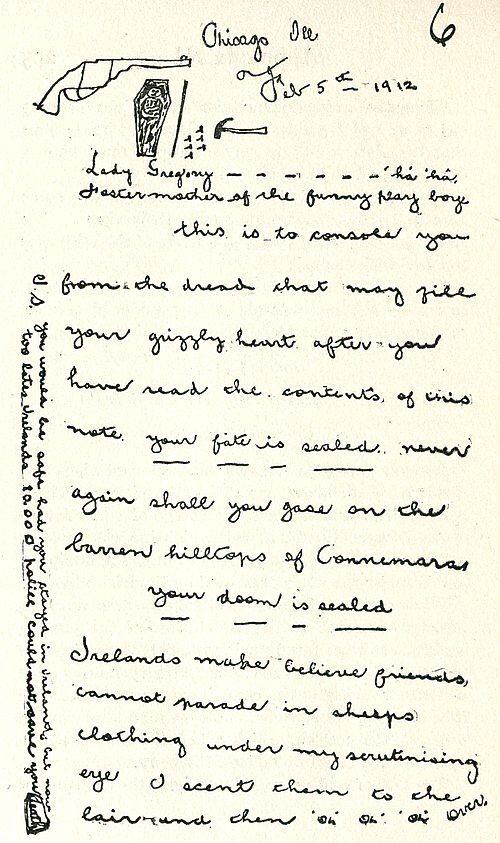 6
Chicago Ill
Feb 5th 1912
Lady Gregory — — — — — — "ha" ha,
Foster mother of the funny play boye
this is to console you
from the dread that may fill
your grizzly heart after you
have read the contents of this
note. your fate is sealed. never
again shall you gase on the
barren hilltops of Connemara
your doom is sealed
Irelands make believe friends,
cannot parade in sheeps
clothing under my scrutinising
eye I scent them to the
lair and then
you would be safe had you stayed in Ireland, but now
too late, Irelands 10.000 police could not save you Death